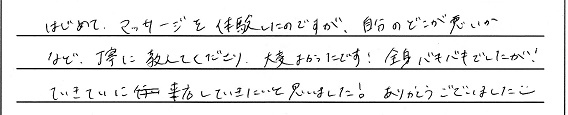 はじめて、マッサージを体験したのですが、自分のどこが悪いか
など、丁寧に教えてくださり、大変よかったです！全身バキバキでしたが！
ていきていに来店していきたいと思いました！ありがとうございました